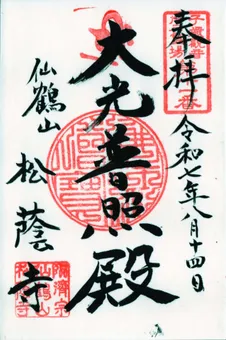 奉拝
令和七年八月十四日
大光普照殿
仙鶴山
松蔭寺